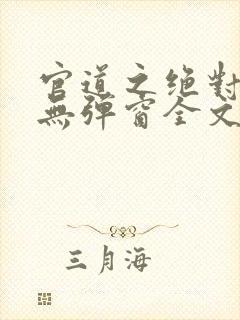 官道之绝對
無彈窗全文
三月海